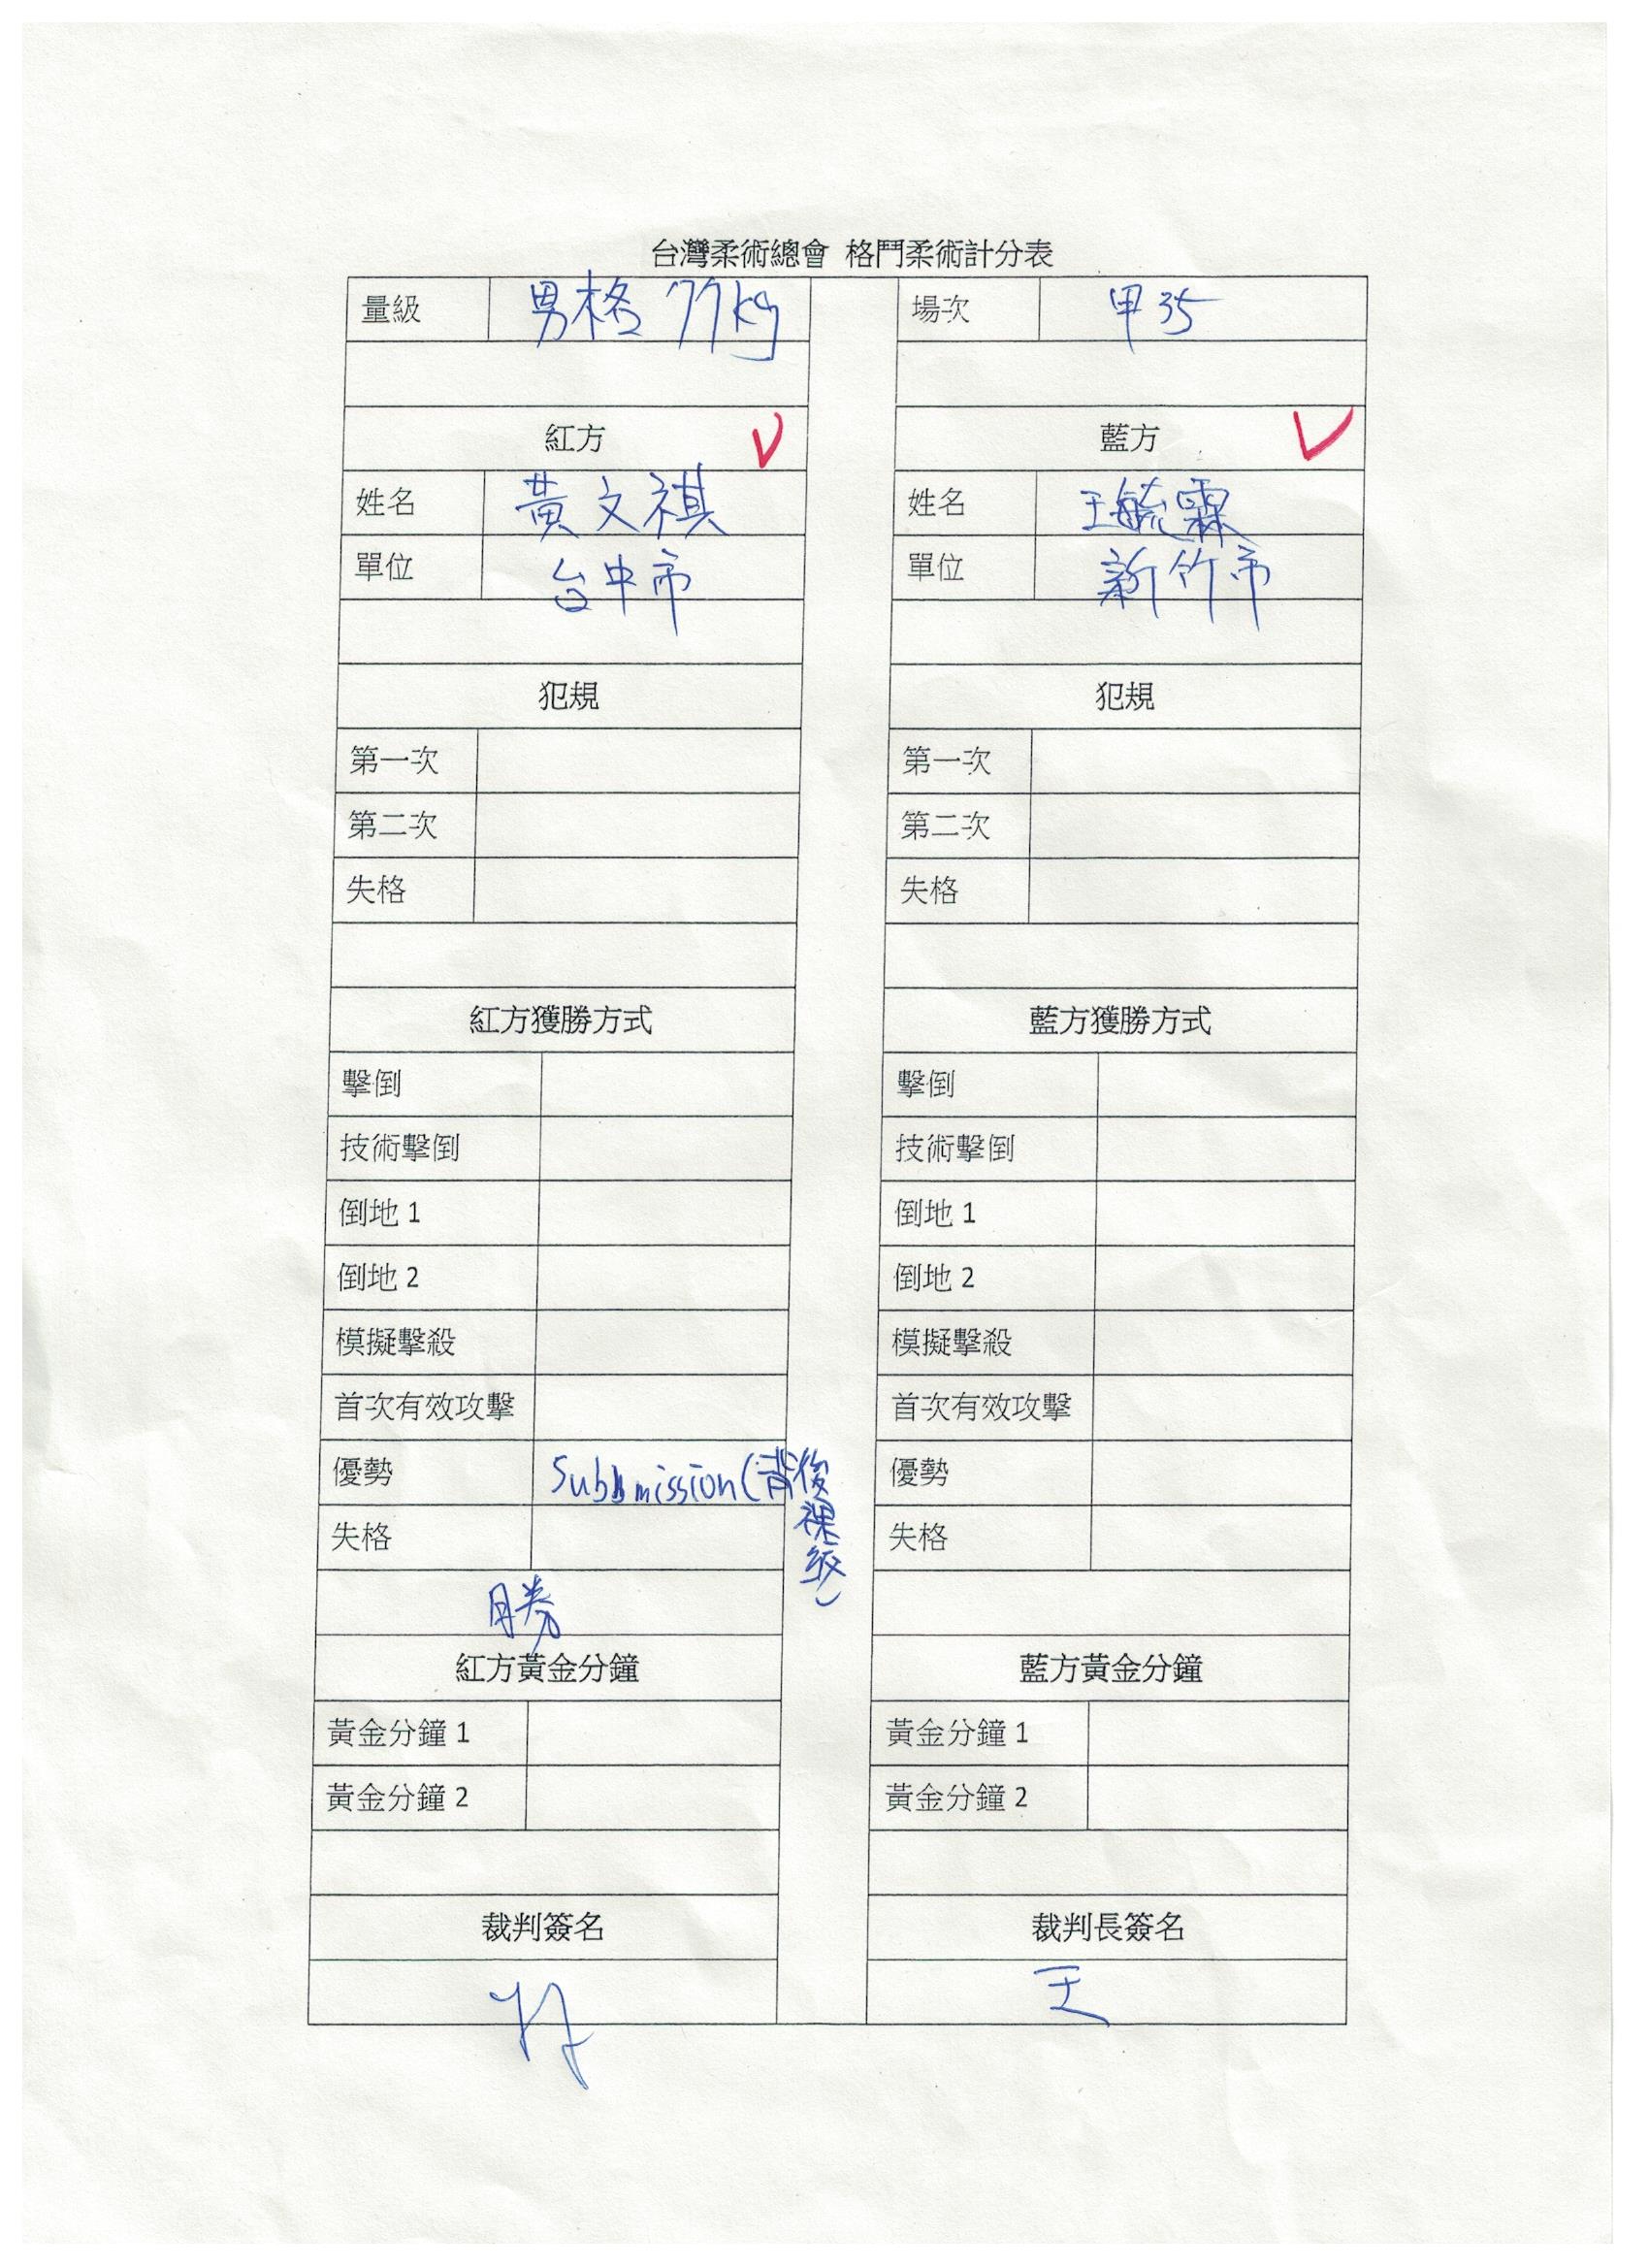 台灣柔術總會 格鬥柔術計分表
量級 男格 77kg 場次 甲35
紅方 藍方
姓名 黃文祺 姓名 王毓霖
單位 台中市 單位 新竹市
犯規 犯規
第一次 第一次
第二次 第二次
失格 失格
紅方獲勝方式 藍方獲勝方式
擊倒 擊倒
技術擊倒 技術擊倒
倒地 1 倒地 1
倒地 2 倒地 2
模擬擊殺 模擬擊殺
首次有效攻擊 首次有效攻擊
優勢 Submission(背後裸絞) 優勢
失格 失格
勝
紅方黃金分鐘 藍方黃金分鐘
黃金分鐘 1 黃金分鐘 1
黃金分鐘 2 黃金分鐘 2
裁判簽名 裁判長簽名
王